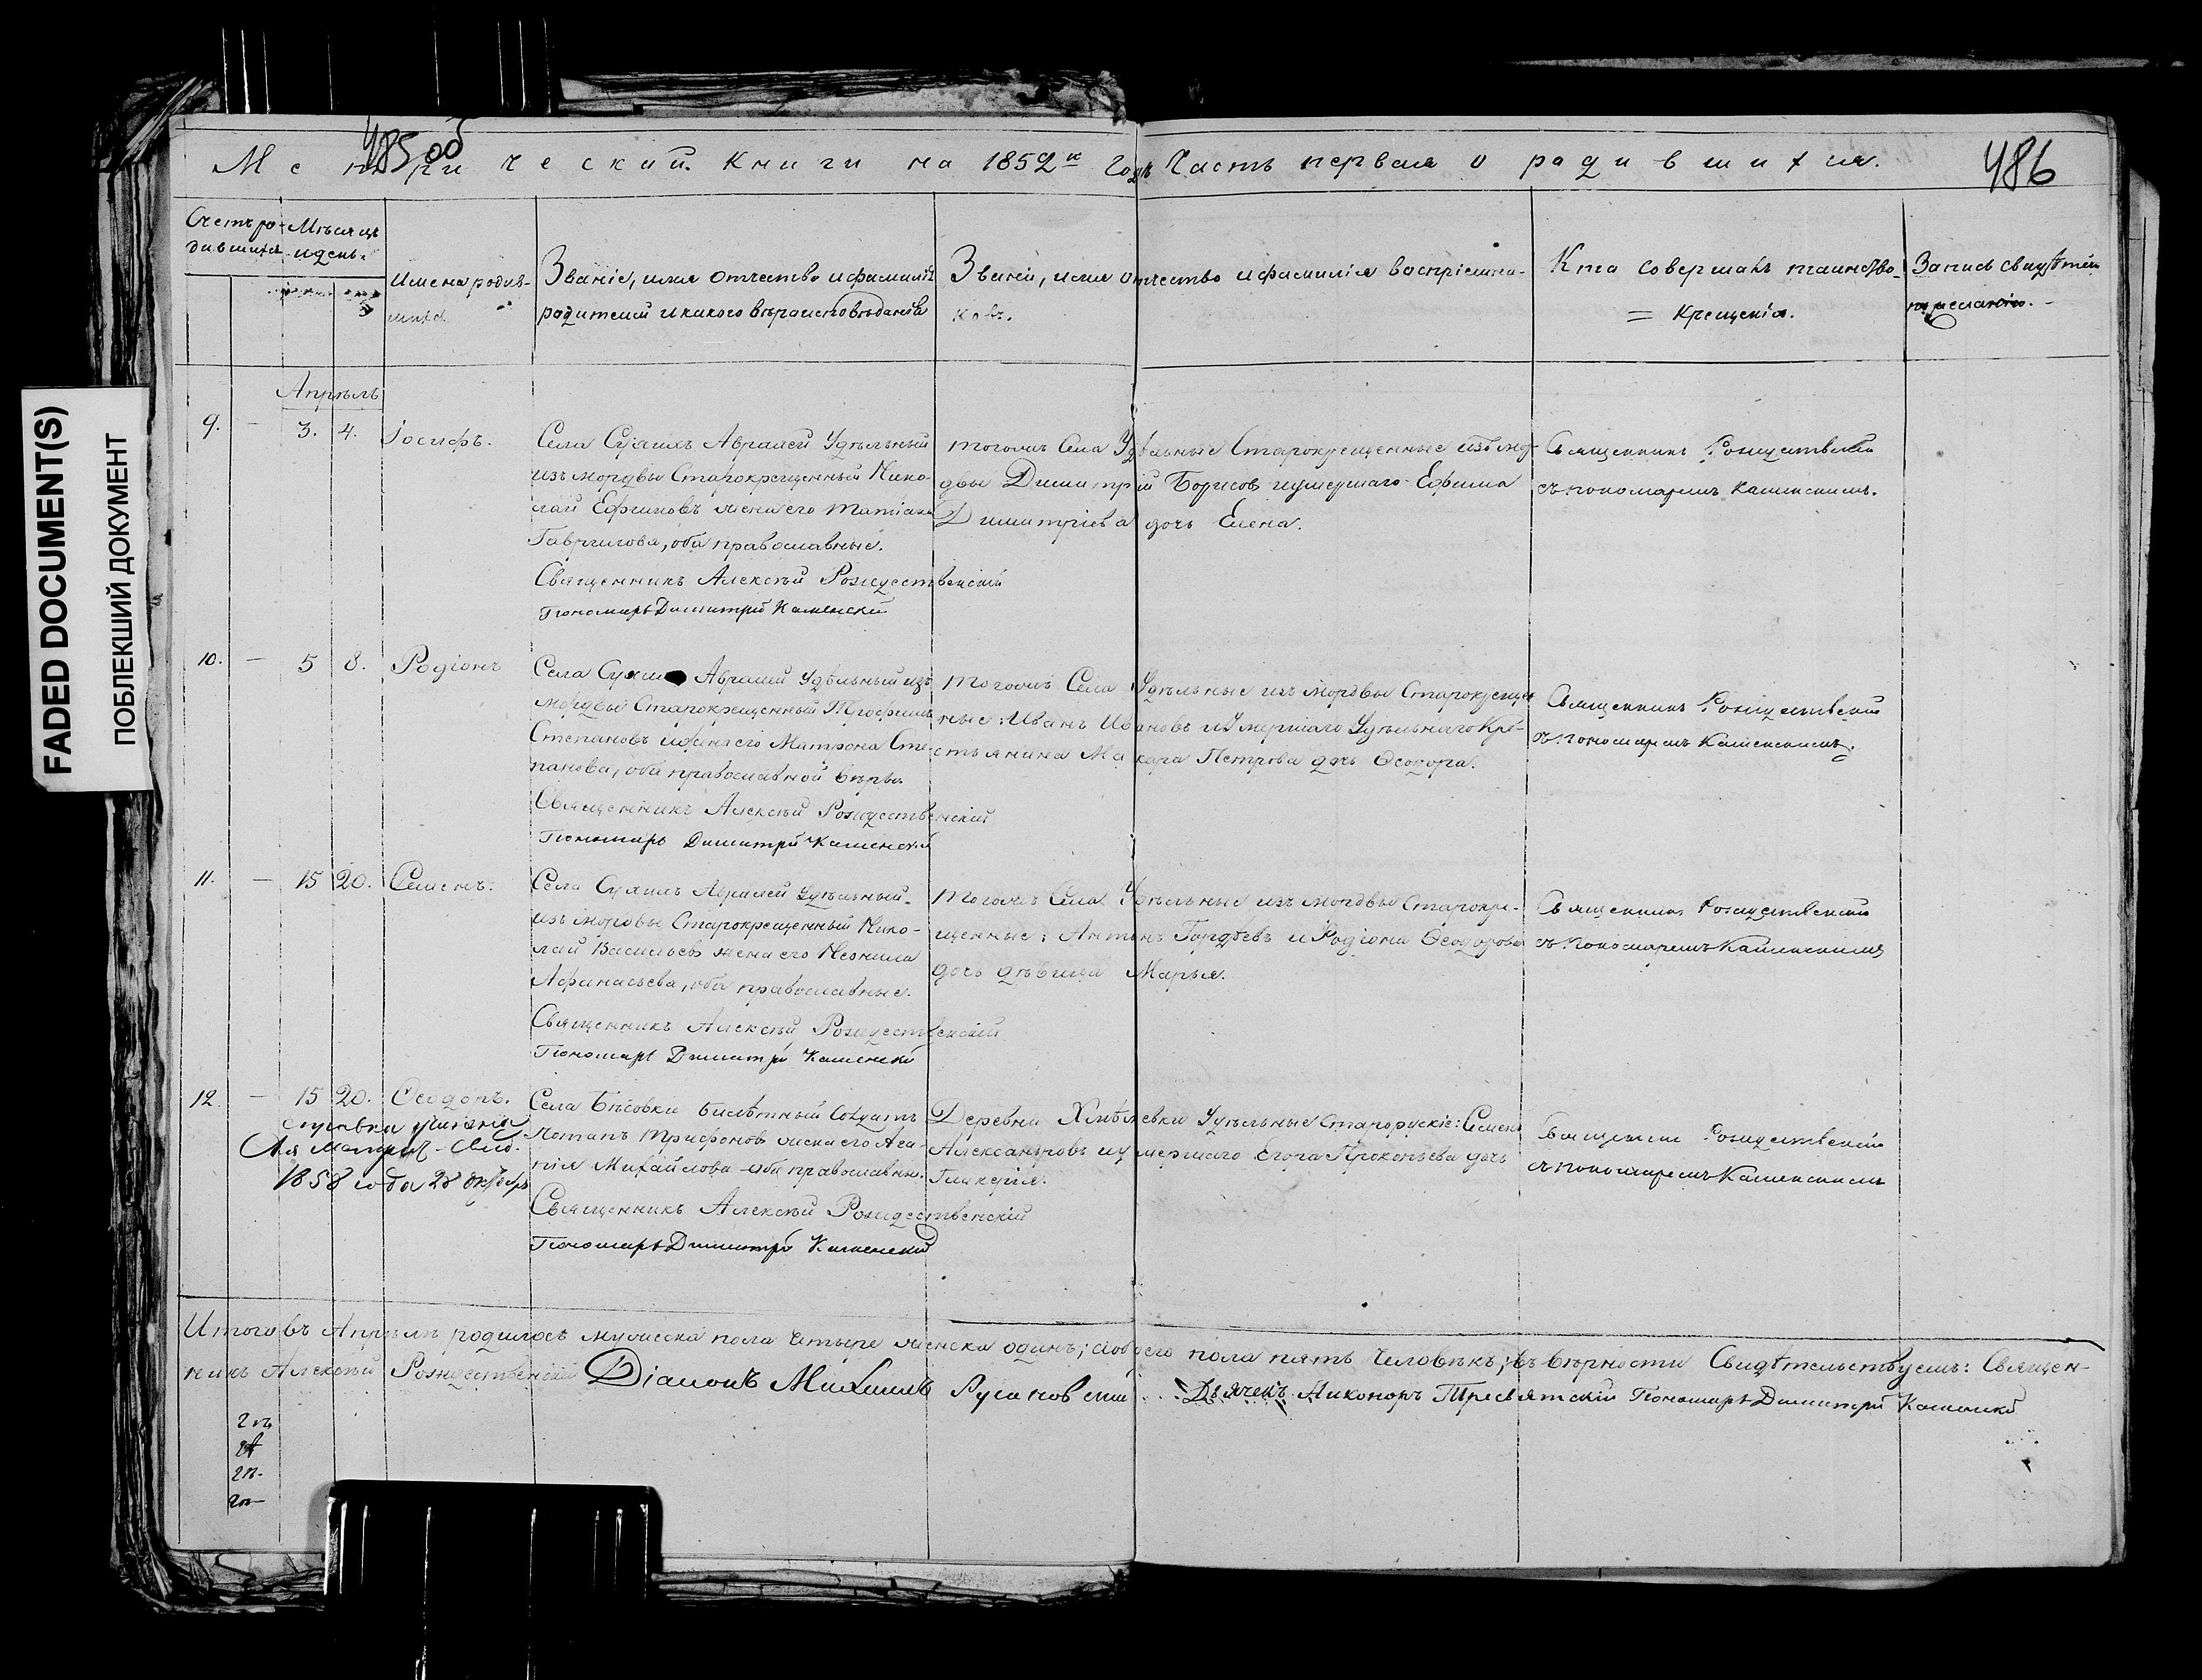 485 об
486
Метрической книги на 1852й Годъ Часть первая о родившихся.
Счетъ ро-
дившихся
Мѣсяцъ
и день.
Имена родив-
шихся
Званіе, имя отчество и фамилія
родителей и какого вѣроисповѣданія
Званіе, имя отчество и фамилія воспріемни-
ковъ.
Кто совершалъ таинство
= Крещенія.
FADED DOCUMENT(S)
ПОБЛЕКШИЙ ДОКУМЕНТ
Апрѣль
9. - 3. 4. Іосифъ.
Села Аврамей Удѣльный
изъ мордвы Старокрещенный Нико-
лай Ефимовъ жена его Татіана
Гаврилова, оба православные.
Священникъ Алексѣй Рождественскій
Пономарь Димитрій Каменскій
тогожъ Села Удѣльные Старокрещенные изъ мор-
двы Димитрій Борисовъ и умершаго Ефима
Димитріева дочь Елена.
Священникъ Рождественскій
съ пономаремъ Каменскимъ.
10. - 5 8. Родіонъ
Села Аврамей Удѣльный изъ
мордвы Старокрещенный Трофимъ
Степановъ и жена его Матрона Сте-
панова, оба православной вѣры.
Священникъ Алексѣй Рождественскій
Пономарь Димитрій Каменскій
тогожъ Села Удѣльные изъ мордвы Старокрещен
ные: Иванъ Ивановъ и Умершаго Удѣльнаго Кре-
стьянина Макара Петрова дочь Ѳеодора.
Священникъ Рождественскій
съ пономаремъ Каменскимъ.
11. - 15 20. Семенъ.
Села Аврамей Удѣльный
изъ мордвы Старокрещенный Нико-
лай Васильевъ жена его Неонила
Афанасьева, оба православные.
Священникъ Алексѣй Рождественскій
Пономарь Димитрій Каменскій
тогожъ Села Удѣльные изъ мордвы Старокре-
щенные: Антонъ Гордѣевъ и Родіона Ѳеодорова
дочь дѣвица Марья.
Священникъ Рождественскій
съ пономаремъ Каменскимъ
12. - 15 20. Ѳеодоръ.
1858 года 28 октябр
Села Бѣсовки билѣтный Солдатъ
Потапъ Трифоновъ жена его Ага-
пія Михайлова оба православные.
Священникъ Алексѣй Рождественскій
Пономарь Димитрій Каменскій
Деревни Хмѣлевки Удѣльные Старорускіе: Семенъ
Александровъ и умершаго Егора Прокопьева дочь
Гликерія.
Священникъ Рождественскій
съ пономаремъ Каменскимъ
Итого въ Апрѣлѣ родилось мужеска пола четыре женска одинъ; обоего пола пять человѣкъ; въ вѣрности Свидѣтельствуемъ: Священ-
никъ Алексѣй Рождественскій Діаконъ Михаилъ Русановскій Дьячекъ Никоноръ Тресвятскій Пономарь Димитрій Каменскій